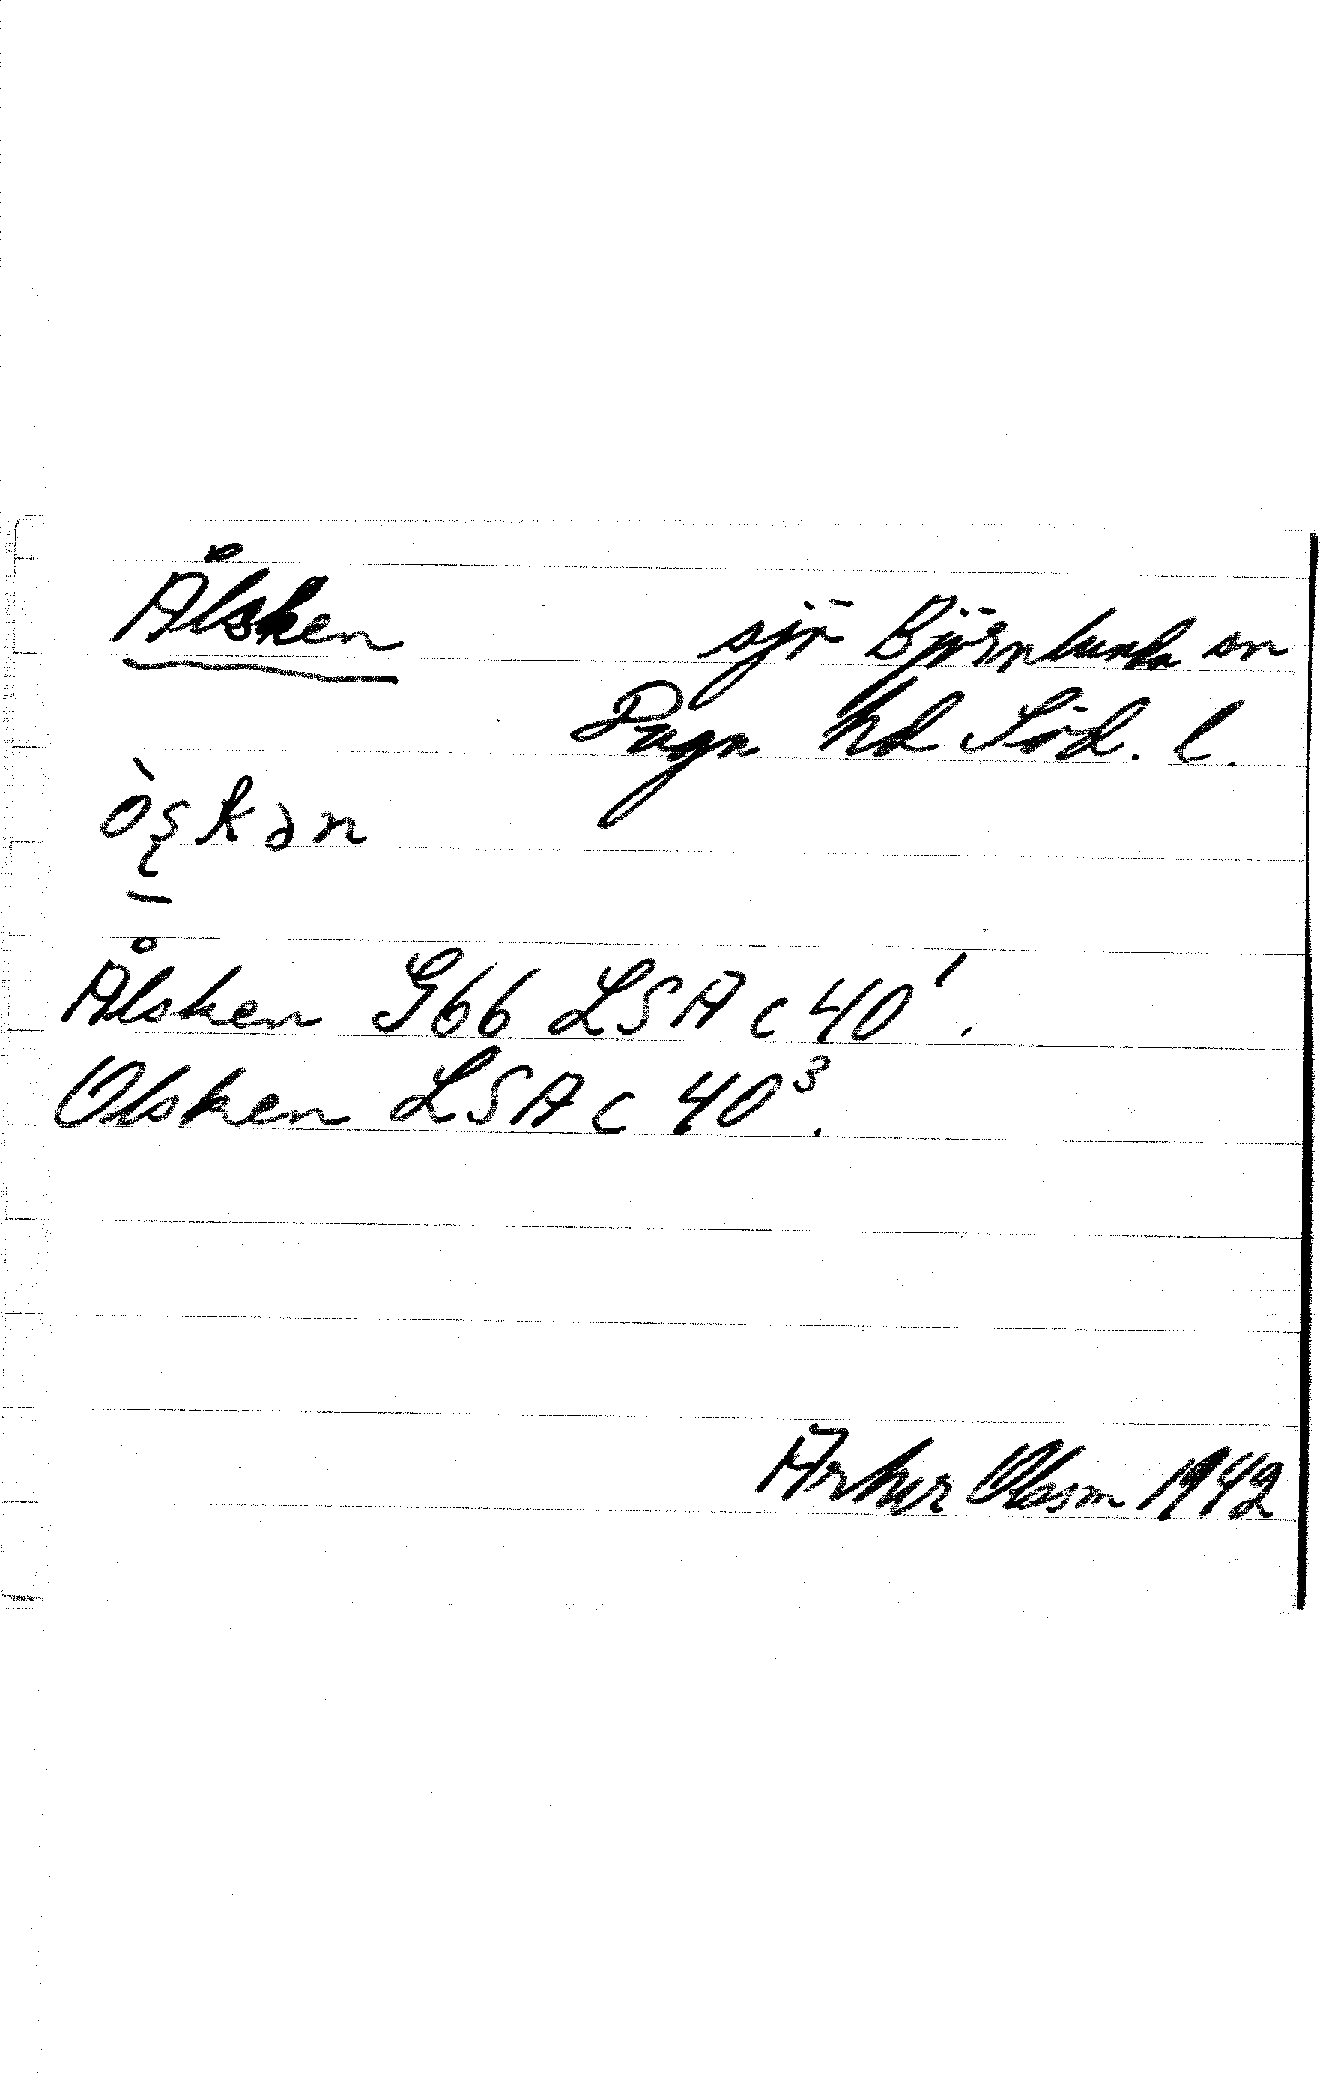 Ålsken
sjö Björnlunda sn
Daga hd Söd. l.
òʂkən
Ålsken G66 LSA c 40¹.
Olsken LSA c 40³.
Arthur Olsson 1942